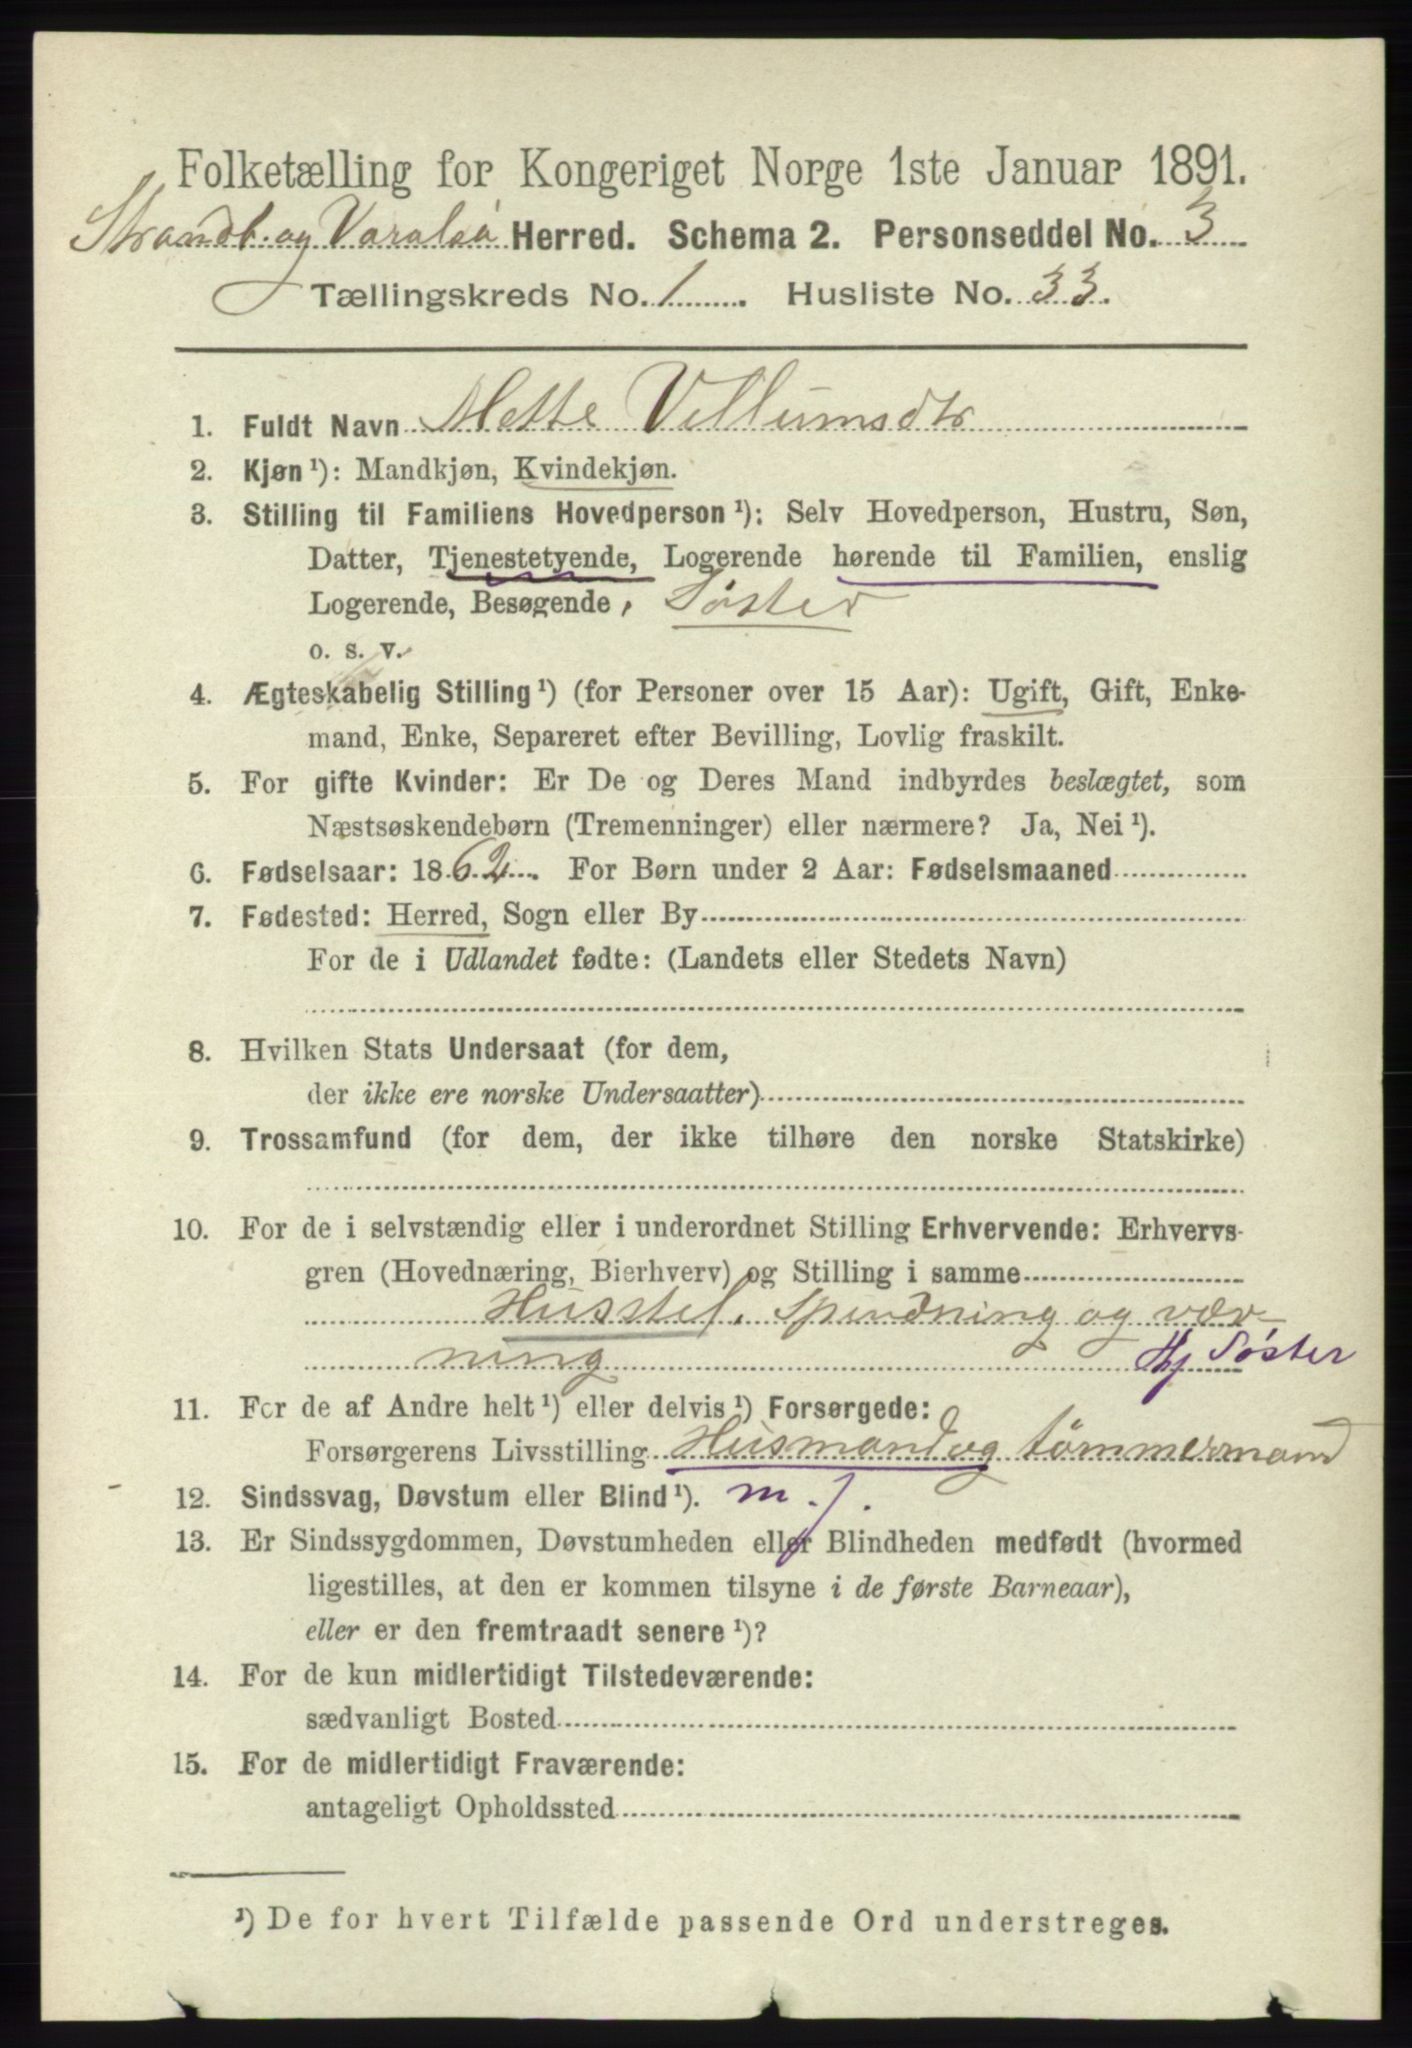 Folketælling for Kongeriget Norge 1ste Januar 1891.
Strandb. og Varalsø Herred. Schema 2. Personseddel No. 3
Tællingskreds No. 1 Husliste No. 33.
1. Fuldt Navn Mette Villumsdtr
2. Kjøn ¹): Mandkjøn, Kvindekjøn.
3. Stilling til Familiens Hovedperson ¹): Selv Hovedperson, Hustru, Søn,
Datter, Tjenestetyende, Logerende hørende til Familien, enslig
Logerende, Besøgende, Søster
o. s. v.
4. Ægteskabelig Stilling ¹) (for Personer over 15 Aar): Ugift, Gift, Enke-
mand, Enke, Separeret efter Bevilling, Lovlig fraskilt.
5. For gifte Kvinder: Er De og Deres Mand indbyrdes beslægtet, som
Næstsøskendebørn (Tremenninger) eller nærmere? Ja, Nei ¹).
6. Fødselsaar: 1862. For Børn under 2 Aar: Fødselsmaaned
7. Fødested: Herred, Sogn eller By
For de i Udlandet fødte: (Landets eller Stedets Navn)
8. Hvilken Stats Undersaat (for dem,
der ikke ere norske Undersaatter)
9. Trossamfund (for dem, der ikke tilhøre den norske Statskirke)
10. For de i selvstændig eller i underordnet Stilling Erhvervende: Erhvervs-
gren (Hovednæring, Bierhverv) og Stilling i samme
Husstel. Spindning og væv-
ning Hf Søster
11. For de af Andre helt ¹) eller delvis ¹) Forsørgede:
Forsørgerens Livsstilling Husmand og tømmermand
12. Sindssvag, Døvstum eller Blind ¹). m. f.
13. Er Sindssygdommen, Døvstumheden eller Blindheden medfødt (hvormed
ligestilles, at den er kommen tilsyne i de første Barneaar),
eller er den fremtraadt senere ¹)?
14. For de kun midlertidigt Tilstedeværende:
sædvanligt Bosted
15. For de midlertidigt Fraværende:
antageligt Opholdssted
¹) De for hvert Tilfælde passende Ord understreges.